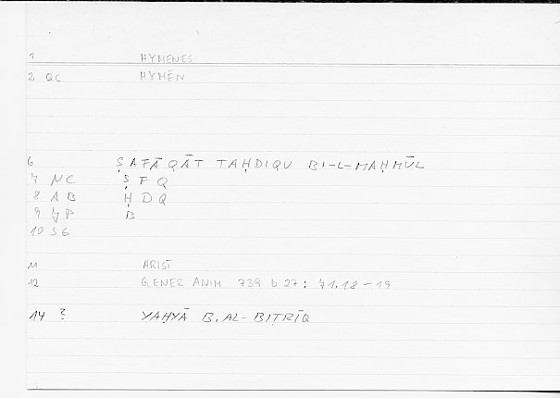 1 HYMENES
2 QC HYMĒN
6 ṢAFĀQĀT TAḤDIQU BI-L-MAḤMŪL
7 NC Ṣ F Q
8 AB Ḥ D Q
9 VP B
10 SG
11 ARIST
12 GENER ANIM 739 b 27: 71.18-19
14 ? YAḤYĀ B. AL-BIṬRĪQ